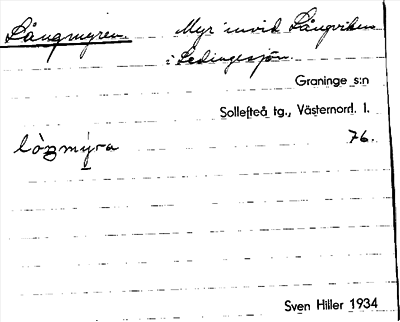 Långmyren. Myr invid Långviken
i Ledingesjön.
Graninge s:n
Sollefteå tg., Västernorrl. l.
lòŋmýra 76.
Sven Hiller 1934